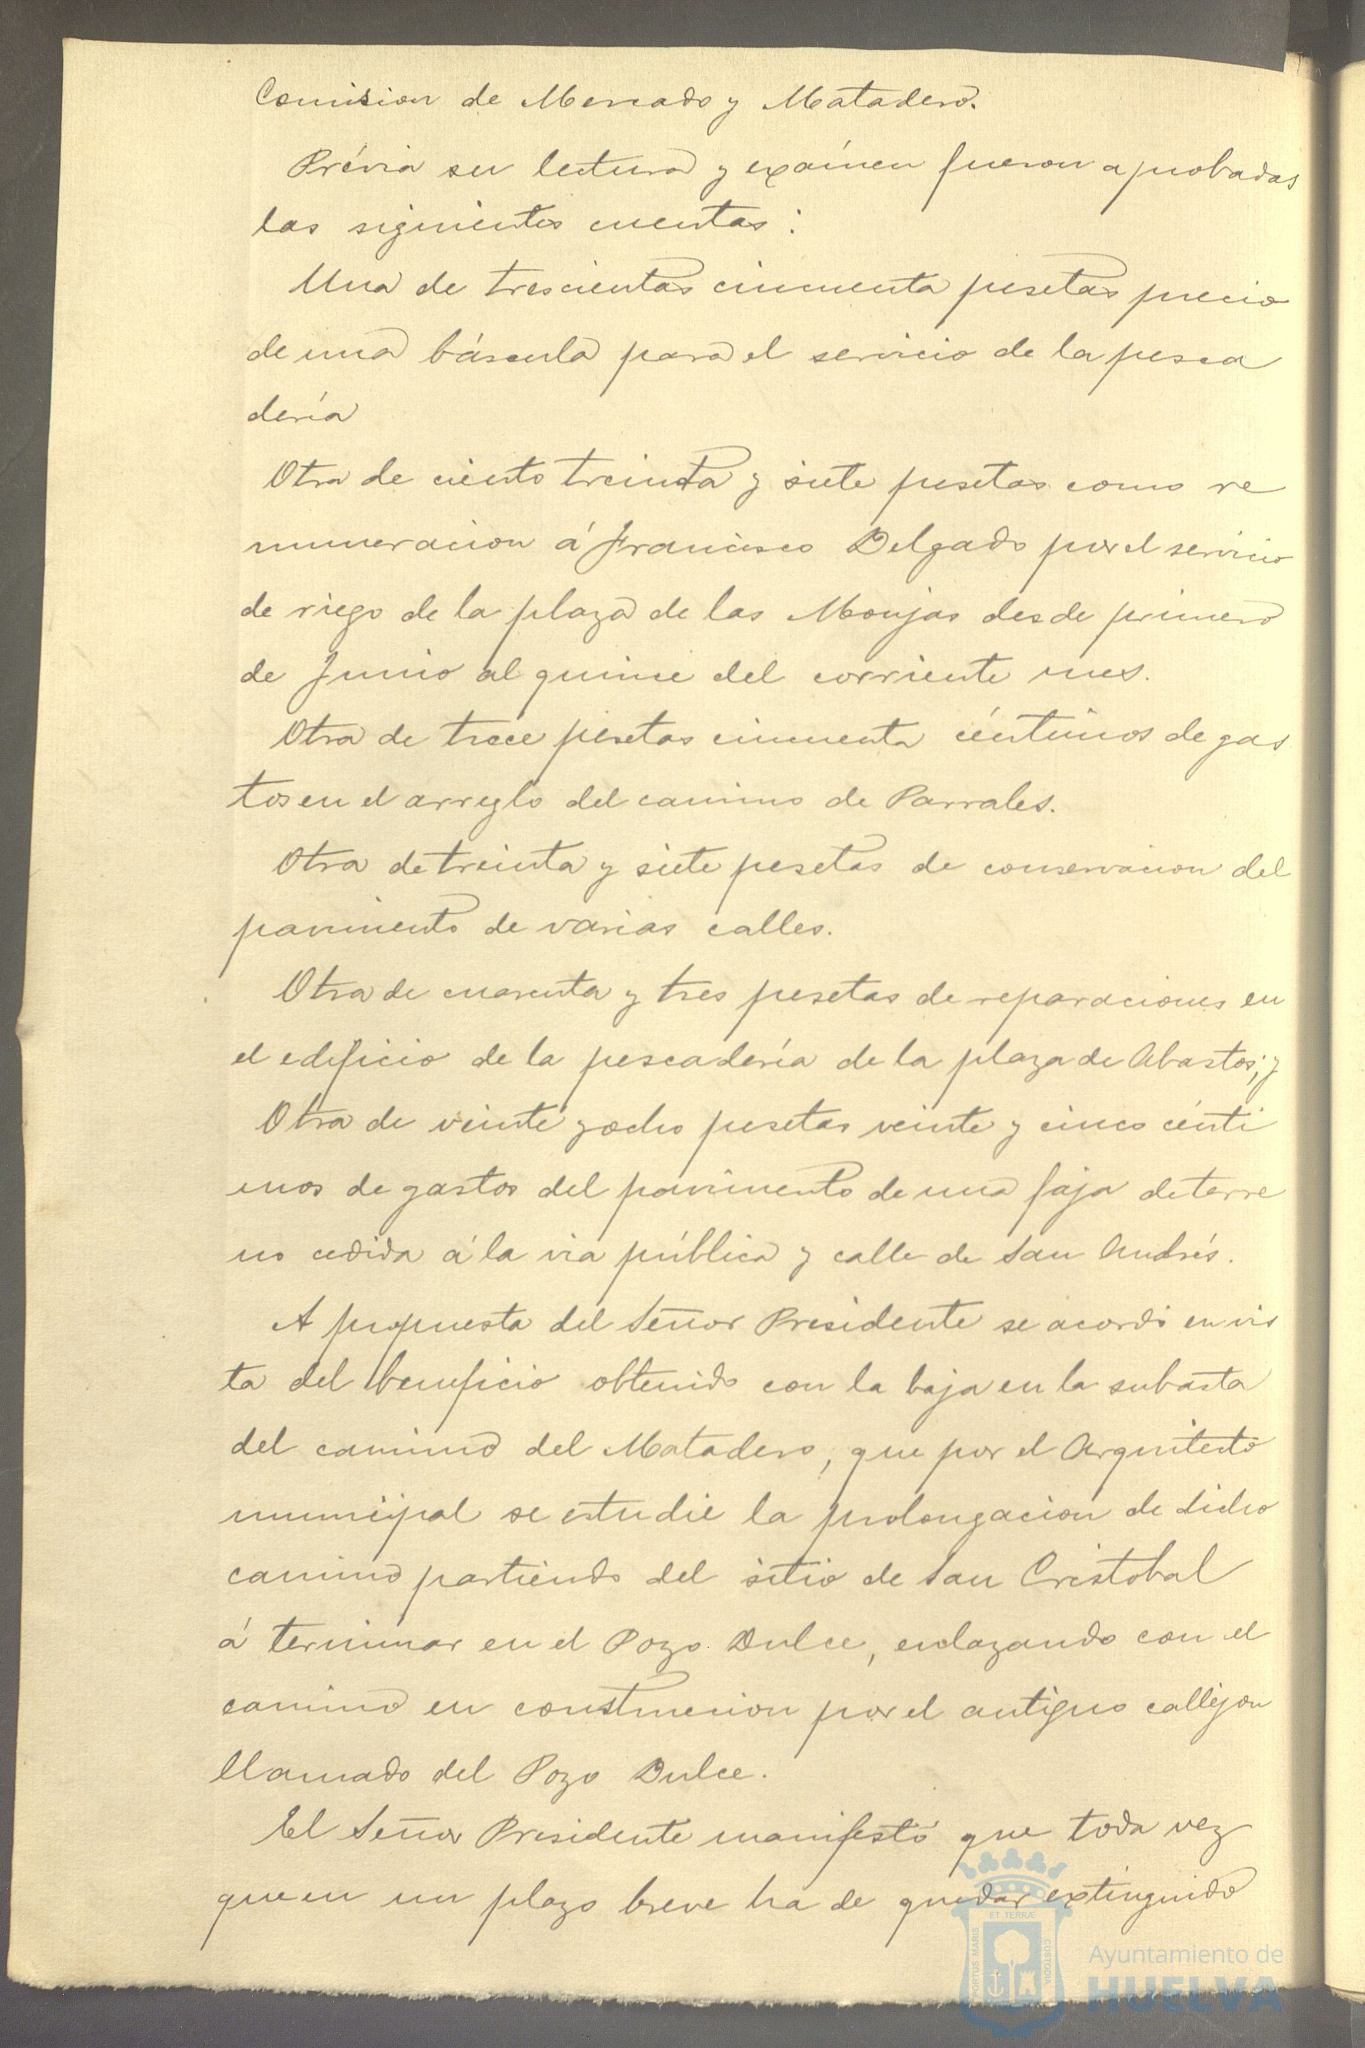 Comision de Mercado y Matadero.
Prévia su lectura y exámen fueron aprobadas
las siguientes cuentas:
Una de trescientas cincuenta pesetas precio
de una báscula para el servicio de la pesca
dería
Otra de ciento treinta y siete pesetas como re
muneracion á Francisco Delgado por el servicio
de riego de la plaza de las Monjas desde primero
de Junio al quince del corriente mes.
Otra de trece pesetas cincuenta céntimos de gas
tos en el arreglo del camino de Parrales.
Otra de treinta y siete pesetas de conservacion del
pavimento de varias calles.
Otra de cuarenta y tres pesetas de reparaciones en
el edificio de la pescadería de la plaza de Abastos; y
Otra de veinte y ocho pesetas veinte y cinco cénti
mos de gastos del pavimento de una faja de terre
no cedida á la via pública y calle de San Andrés.
A propuesta del Señor Presidente se acordó en vis
ta del beneficio obtenido con la baja en la subasta
del camino del Matadero, que por el Arquitecto
municipal se estudie la prolongacion de dicho
camino partiendo del sitio de San Cristobal
á terminar en el Pozo Dulce, enlazando con el
camino en construccion por el antiguo callejon
llamado del Pozo Dulce.
El Señor Presidente manifestó que toda vez
que en un plazo breve ha de quedar extinguido
PORTUS MARIS ET TERRÆ CUSTODIA
Ayuntamiento de
HUELVA